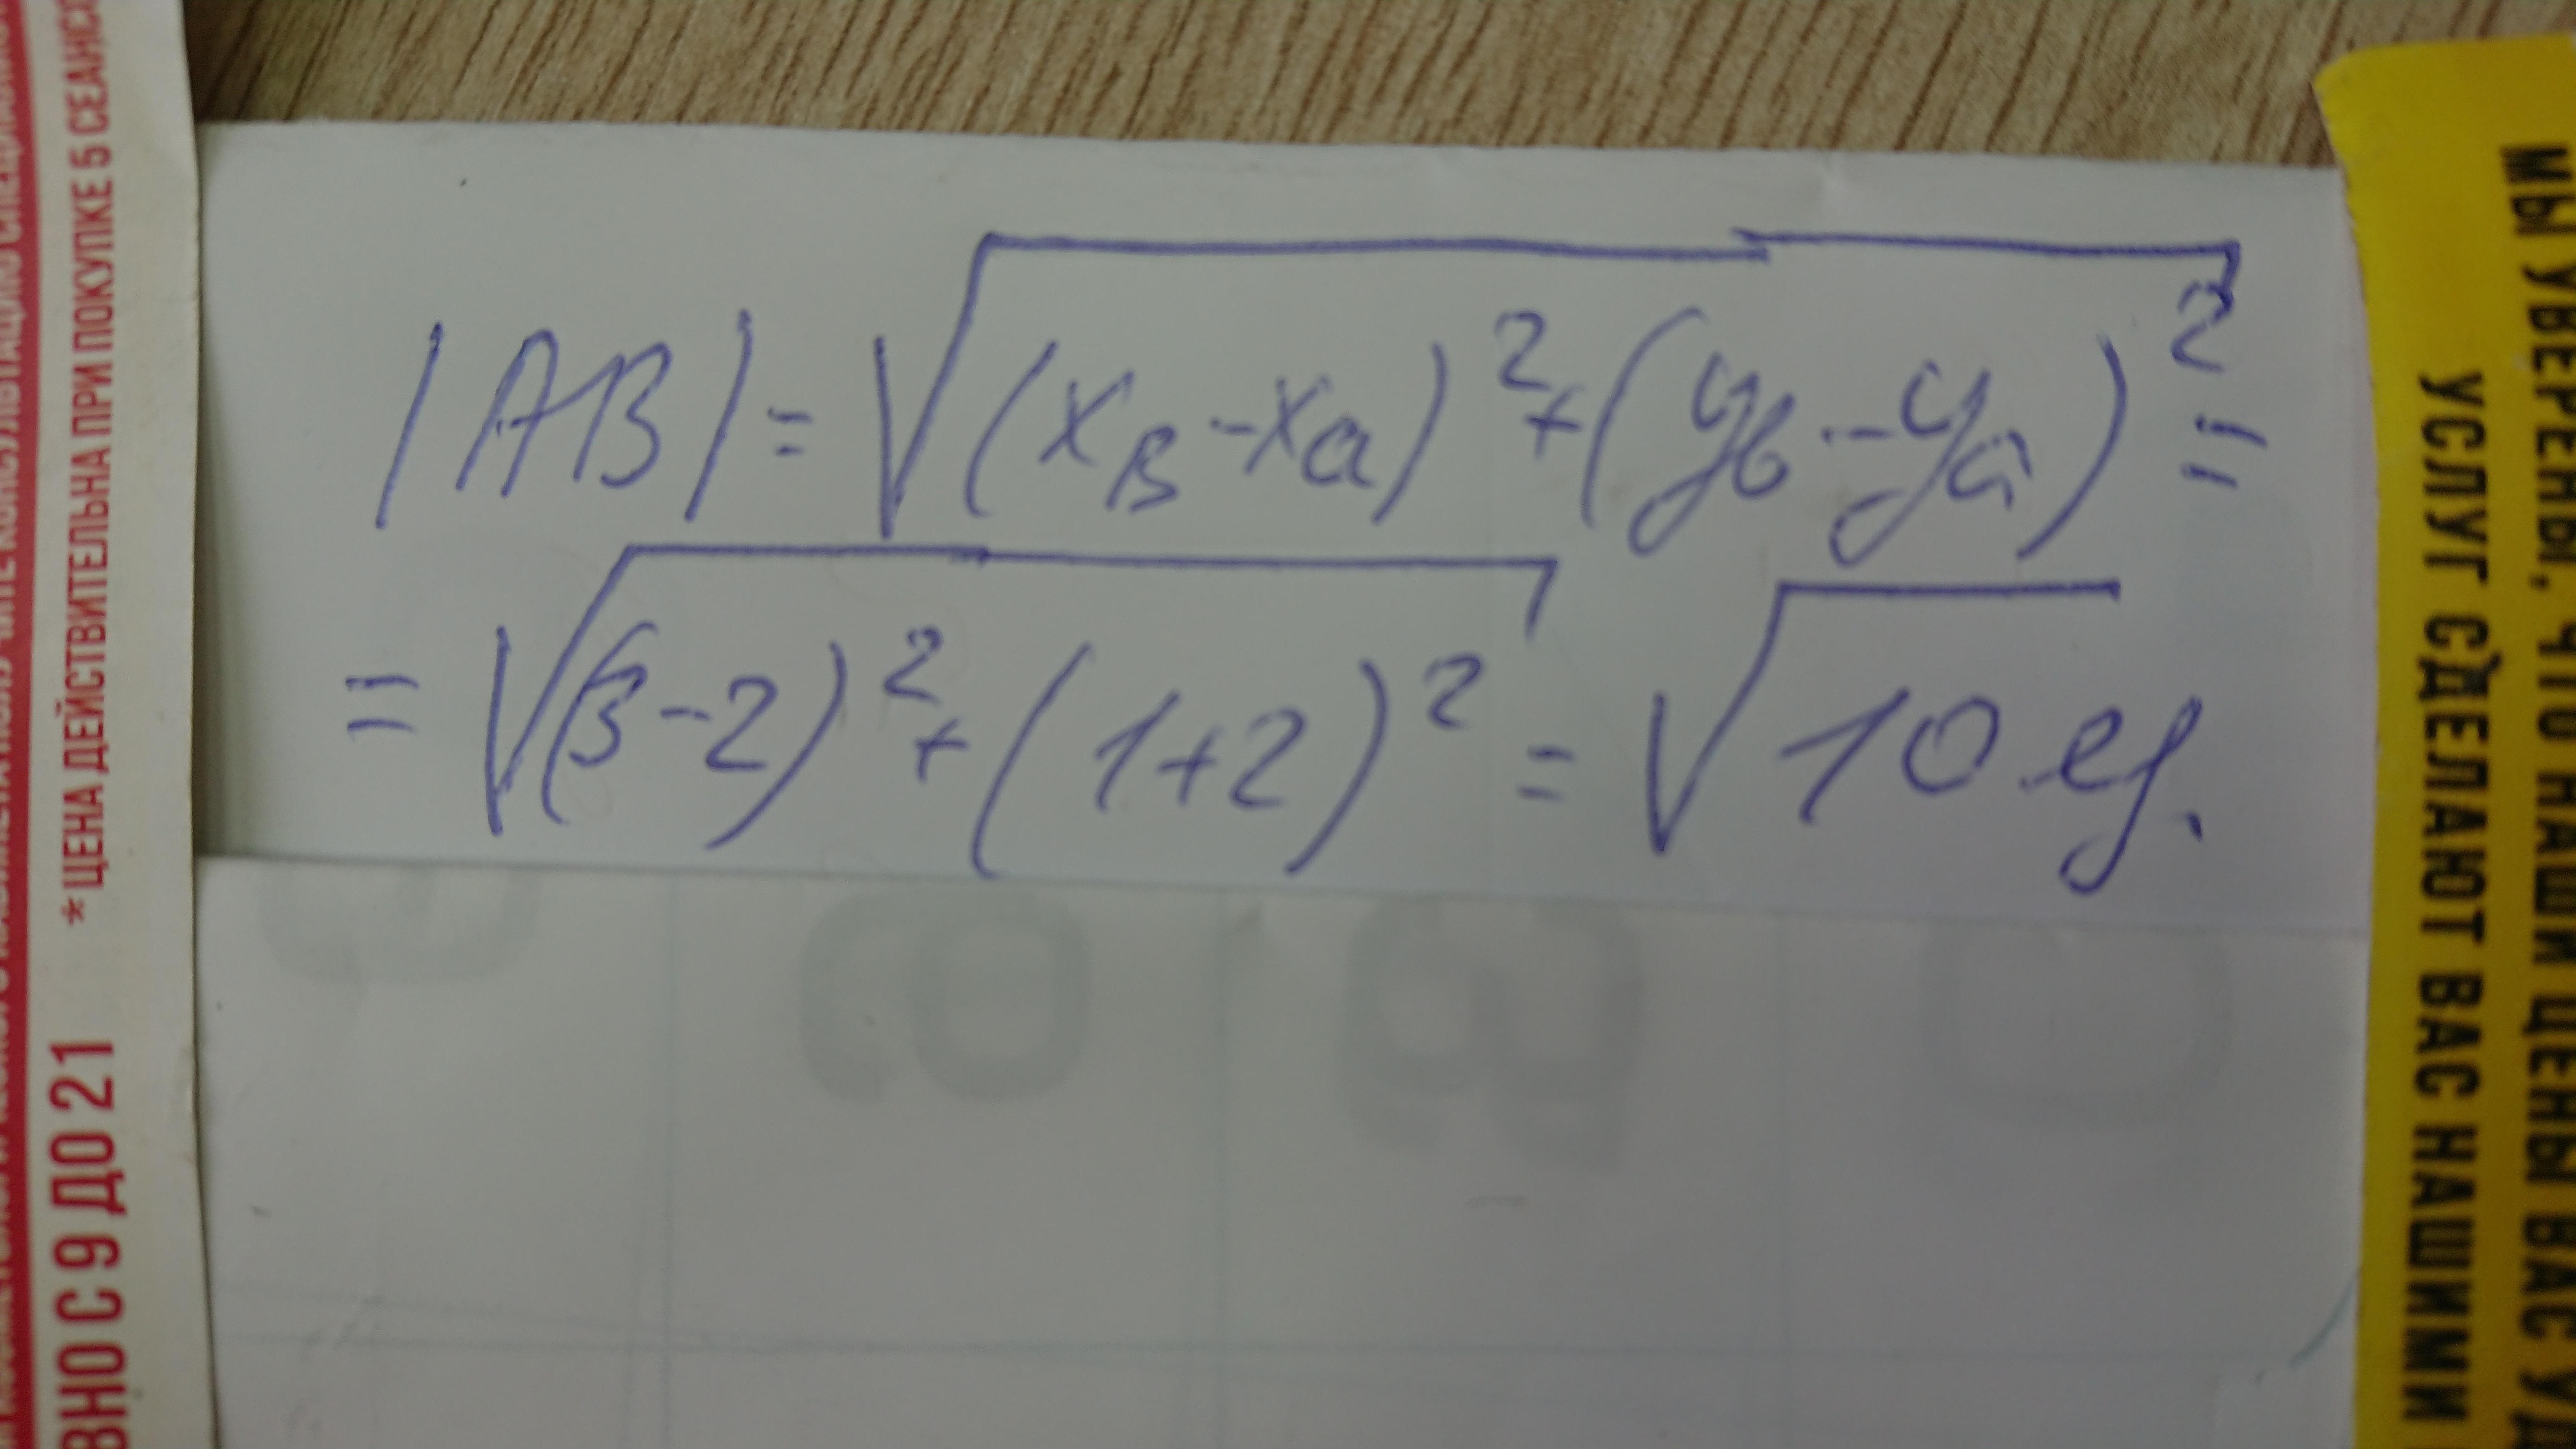 |AB| = √(x_B - x_a)² + (y_b - y_a)² =
= √(3-2)² + (1+2)² = √10 ед.
*ЦЕНА ДЕЙСТВИТЕЛЬНА ПРИ ПОКУПКЕ 5 СЕАНСО
ВНО С 9 ДО 21
МЫ УВЕРЕНЫ, ЧТО НАШИ ЦЕНЫ ВАС УД
УСЛУГ СДЕЛАЮТ ВАС НАШИМИ